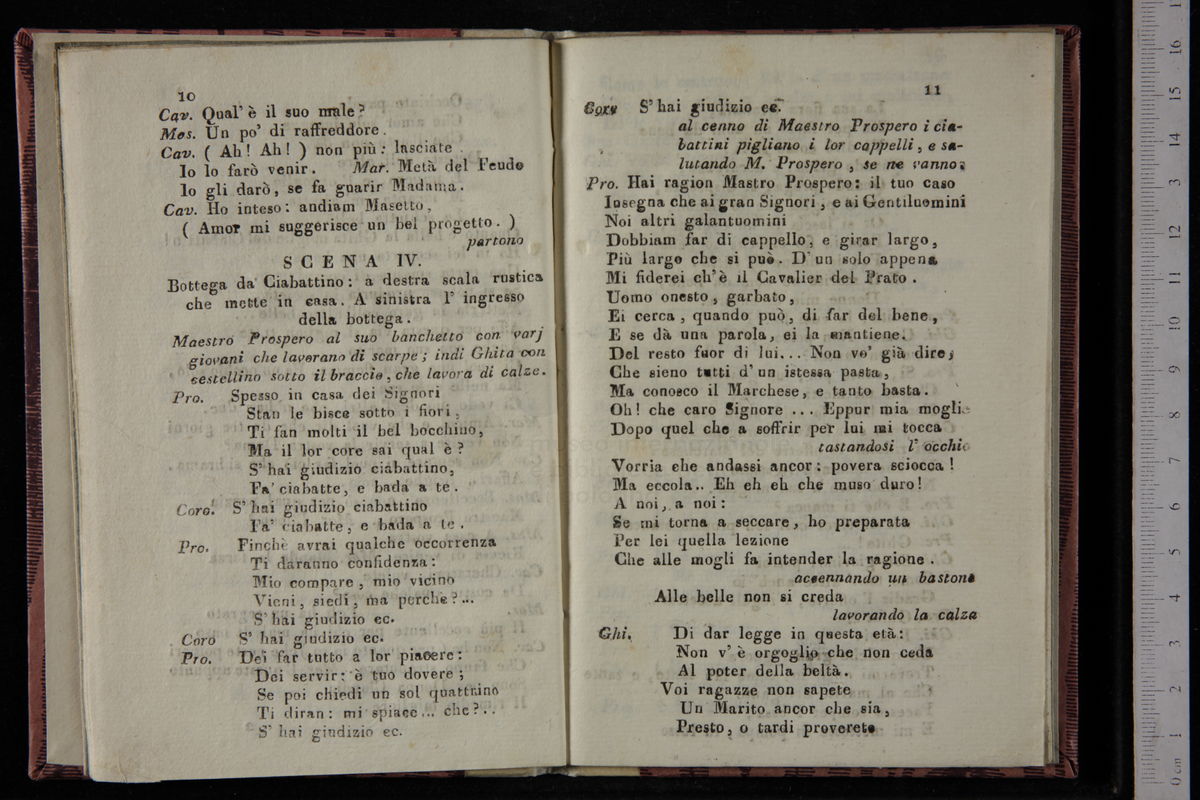 10
Cav. Qual' è il suo male?
Mes. Un po' di raffreddore.
Cav. ( Ah! Ah! ) non più: lasciate
Io lo farò venir. Mar. Metà del Feudo
Io gli darò, se fa guarir Madama.
Cav. Ho inteso: andiam Masetto,
( Amor mi suggerisce un bel progetto. )
partono
SCENA IV.
Bottega da Ciabattino: a destra scala rustica
che mette in casa. A sinistra l' ingresso
della bottega.
Maestro Prospero al suo banchetto con varj
giovani che laverano di scarpe; indi Ghita con
cestellino sotto il braccio, che lavora di calze.
Pro. Spesso in casa dei Signori
Stan le bisce sotto i fiori,
Ti fan molti il bel bocchino,
Ma il lor core sai qual è?
S' hai giudizio ciabattino,
Fa' ciabatte, e bada a te.
Coro. S' hai giudizio ciabattino
Fa' ciabatte, e bada a te.
Pro. Finchè avrai qualche occorrenza
Ti daranno confidenza:
Mio compare, mio vicino
Vieni, siedi, ma perchè?...
S' hai giudizio ec.
Coro S' hai giudizio ec.
Pro. Dei far tutto a lor piacere:
Dei servir: è tuo dovere;
Se poi chiedi un sol quattrino
Ti diran: mi spiace... che?..
S' hai giudizio ec.
11
Coro S' hai giudizio ec.
al cenno di Maestro Prospero i cia-
battini pigliano i lor cappelli, e sa-
lutando M. Prospero, se ne vanno.
Pro. Hai ragion Mastro Prospero: il tuo caso
Insegna che ai gran Signori, e ai Gentiluomini
Noi altri galantuomini
Dobbiam far di cappello, e girar largo,
Più largo che si può. D' un solo appena
Mi fiderei ch' è il Cavalier del Prato.
Uomo onesto, garbato,
Ei cerca, quando può, di far del bene,
E se dà una parola, ei la mantiene.
Del resto fuor di lui... Non vo' già dire,
Che sieno tutti d' un istessa pasta,
Ma conosco il Marchese, e tanto basta.
Oh! che caro Signore ... Eppur mia moglie
Dopo quel che a soffrir per lui mi tocca
tastandosi l' occhio
Vorria che andassi ancor: povera sciocca!
Ma eccola.. Eh eh eh che muso duro!
A noi, a noi:
Se mi torna a seccare, ho preparata
Per lei quella lezione
Che alle mogli fa intender la ragione.
accennando un bastone
Alle belle non si creda
lavorando la calza
Ghi. Di dar legge in questa età:
Non v' è orgoglio che non ceda
Al poter della beltà.
Voi ragazze non sapete
Un Marito ancor che sia,
Presto, o tardi proverete